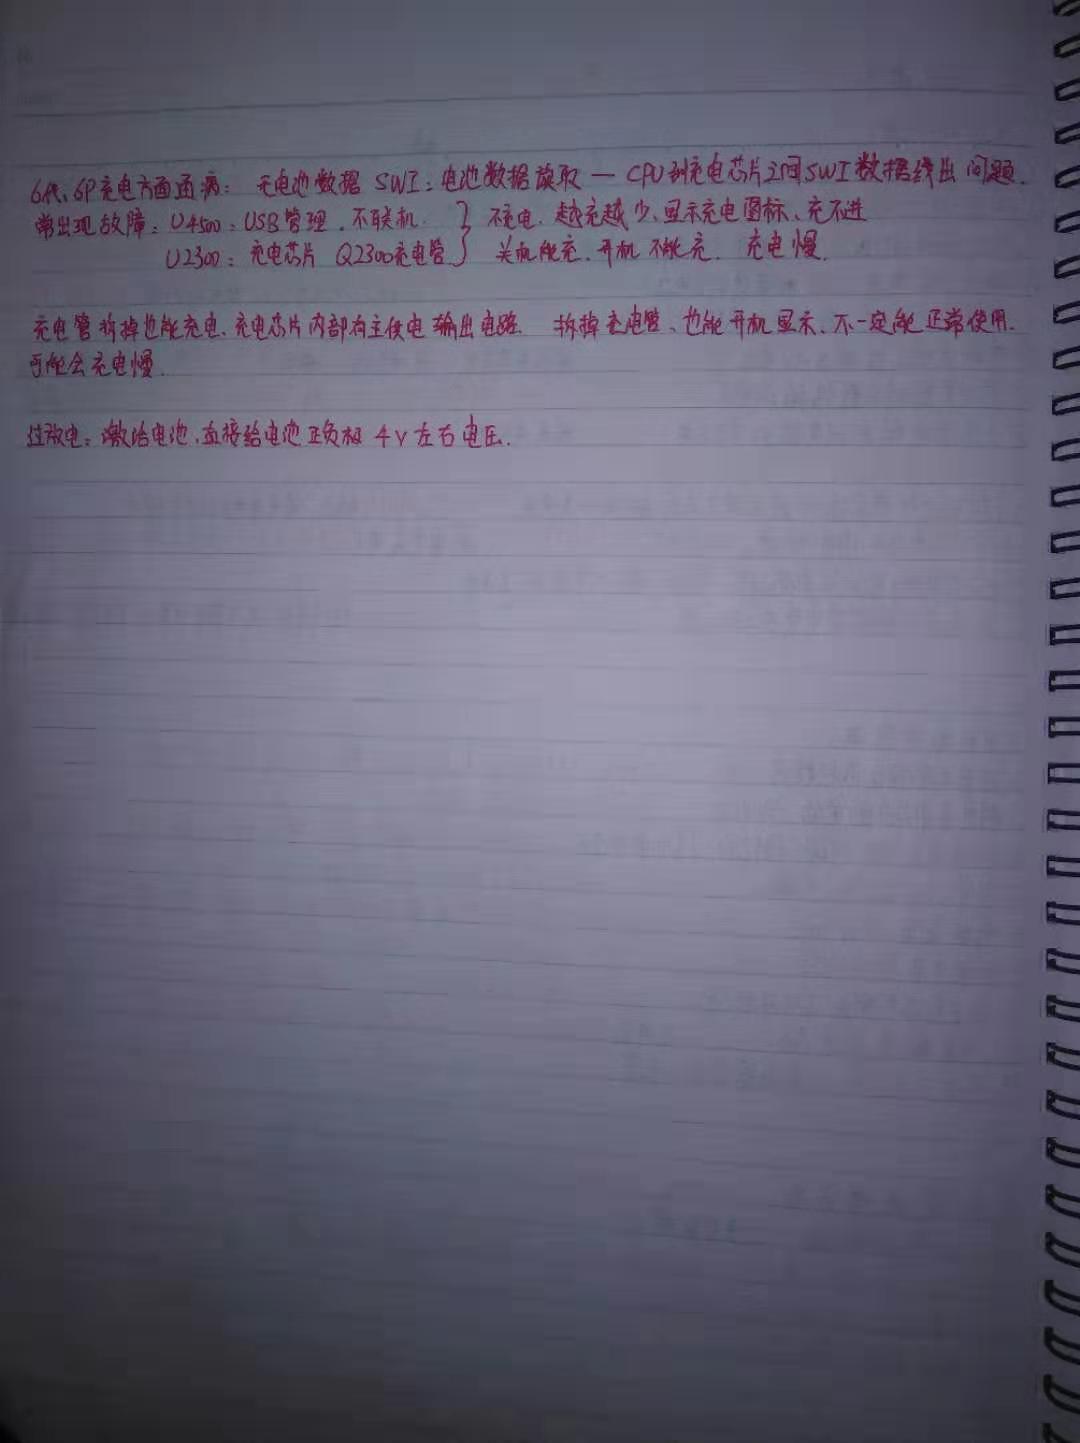 6代、6P充电方面通病：无电池数据 SWI：电池数据读取 — CPU到充电芯片之间SWI数据线出问题.
常出现故障：U4500：USB管理，不联机. } 不充电、越充越少、显示充电图标、充不进
U2300：充电芯片 Q2300充电管 } 关机能充、开机不能充. 充电慢.
充电管拆掉也能充电、充电芯片内部有主供电输出电路. 拆掉充电管、也能开机显示、不一定能正常使用.
可能会充电慢.
过放电：激活电池、直接给电池正负极 4V左右电压.